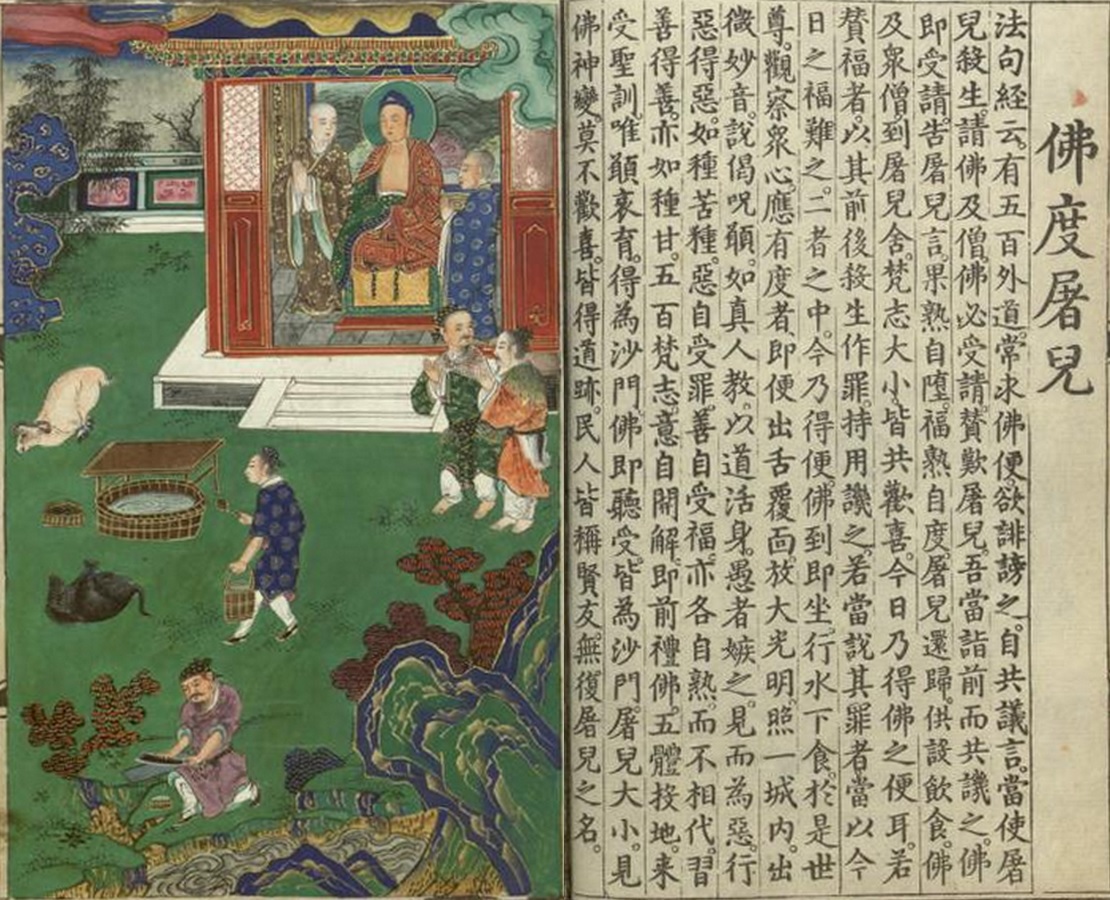 佛度屠兒
法句經云。有五百外道。常求佛便。欲誹謗之。自共議言。當使屠
兒殺生。請佛及僧。佛必受請。賛歎屠兒。吾當詣前而共譏之。佛
即受請。告屠兒言。果熟自墮。福熟自度。屠兒還歸。供設飲食。佛
及眾僧到屠兒舍。梵志大小。皆共歡喜。今日乃得佛之便耳。若
賛福者。以其前後殺生作罪。持用譏之。若當説其罪者。當以今
日之福難之。二者之中。今乃得便。佛到即坐。行水下食。於是世
尊。觀察眾心。應有度者。即便出舌覆面。放大光明。照一城內。出
微妙音。説偈呪願。如真人教。以道活身。愚者嫉之。見而為惡。行
惡得惡。如種苦種。惡自受罪。善自受福。亦各自熟。而不相代。習
善得善。亦如種甘。五百梵志。意自開解。即前禮佛。五體投地。来
受聖訓。唯願哀育。得為沙門。佛即聽受。皆為沙門。屠兒大小。見
佛神變。莫不歡喜。皆得道跡。民人皆稱賢友。無復屠兒之名。